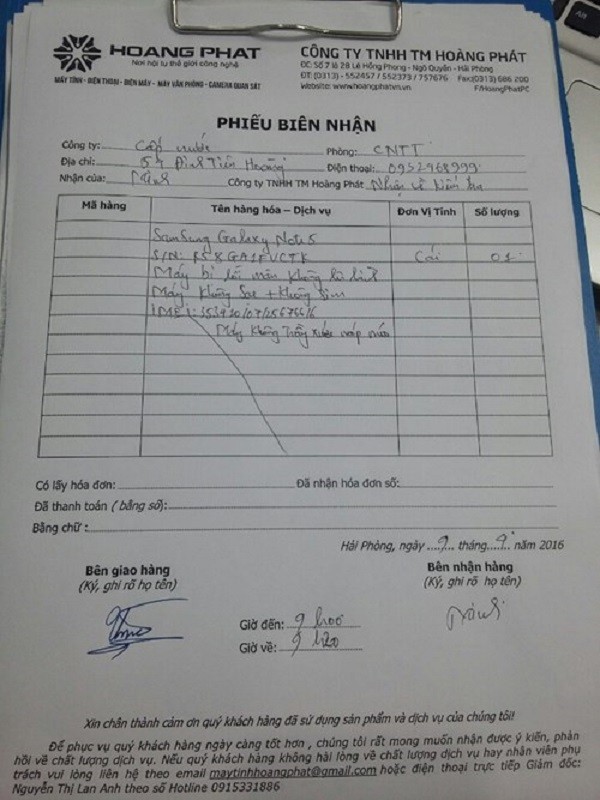 HOANG PHAT
Nơi hội tụ thế giới công nghệ
MÁY TÍNH - ĐIỆN THOẠI - ĐIỆN MÁY - MÁY VĂN PHÒNG - CAMERA QUAN SÁT
CÔNG TY TNHH TM HOÀNG PHÁT
ĐC: Số 7 lô 28 Lê Hồng Phong - Ngô Quyền - Hải Phòng
ĐT: (0313) - 552457 / 552373 / 757676 Fax:(0313) 686 200
Website: www.hoangphatvn.vn F/HoangPhatPC
PHIẾU BIÊN NHẬN
Công ty: Cấp nước Phòng: CNTT
Địa chỉ: 54 Đinh Tiên Hoàng Điện thoại: 0952968999
Nhận của: Công ty TNHH TM Hoàng Phát
Mã hàng Tên hàng hóa – Dịch vụ Đơn Vị Tính Số lượng
SamSung Galaxy Note 5
S/N: Cái 01
Máy bị lỗi màn không
Máy không Sạc + không Sim
IMEI:
Máy không Trầy xước
Có lấy hóa đơn: Đã nhận hóa đơn số:
Đã thanh toán ( bằng số):
Bằng chữ :
Hải Phòng, ngày 9 tháng 9 năm 2016
Bên giao hàng Bên nhận hàng
(Ký, ghi rõ họ tên) (Ký, ghi rõ họ tên)
Giờ đến: 9 h00
Giờ về: 9 h20
Xin chân thành cảm ơn quý khách hàng đã sử dụng sản phẩm và dịch vụ của chúng tôi!
Để phục vụ quý khách hàng ngày càng tốt hơn , chúng tôi rất mong muốn nhận được ý kiến, phản
hồi về chất lượng dịch vụ. Nếu quý khách hàng không hài lòng về chất lượng dịch vụ hay nhân viên phụ
trách vui lòng liên hệ theo email maytinhhoangphat@gmail.com hoặc điện thoại trực tiếp Giám đốc:
Nguyễn Thị Lan Anh theo số Hotline 0915331886